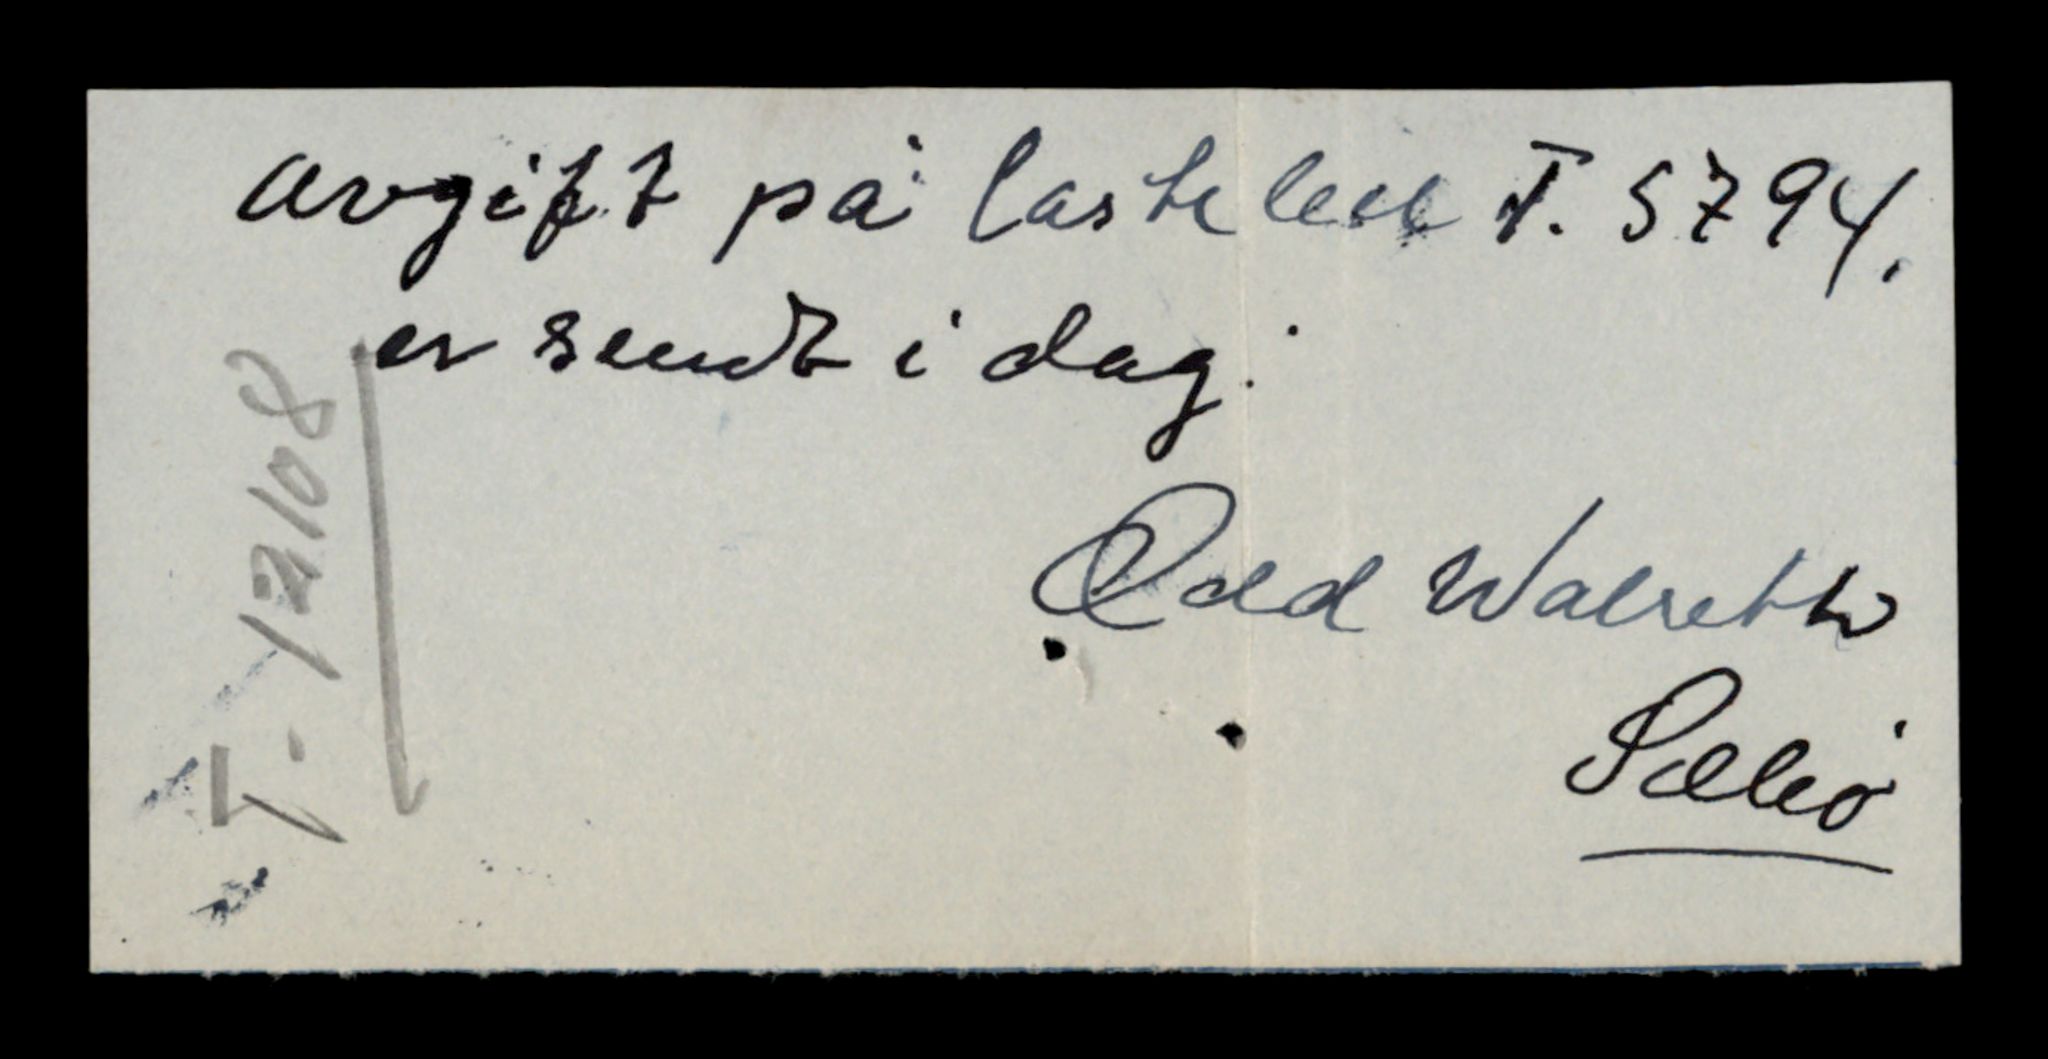 avgift på lastebil T. 5794.
er sendt i dag.
Odd
T. 12108